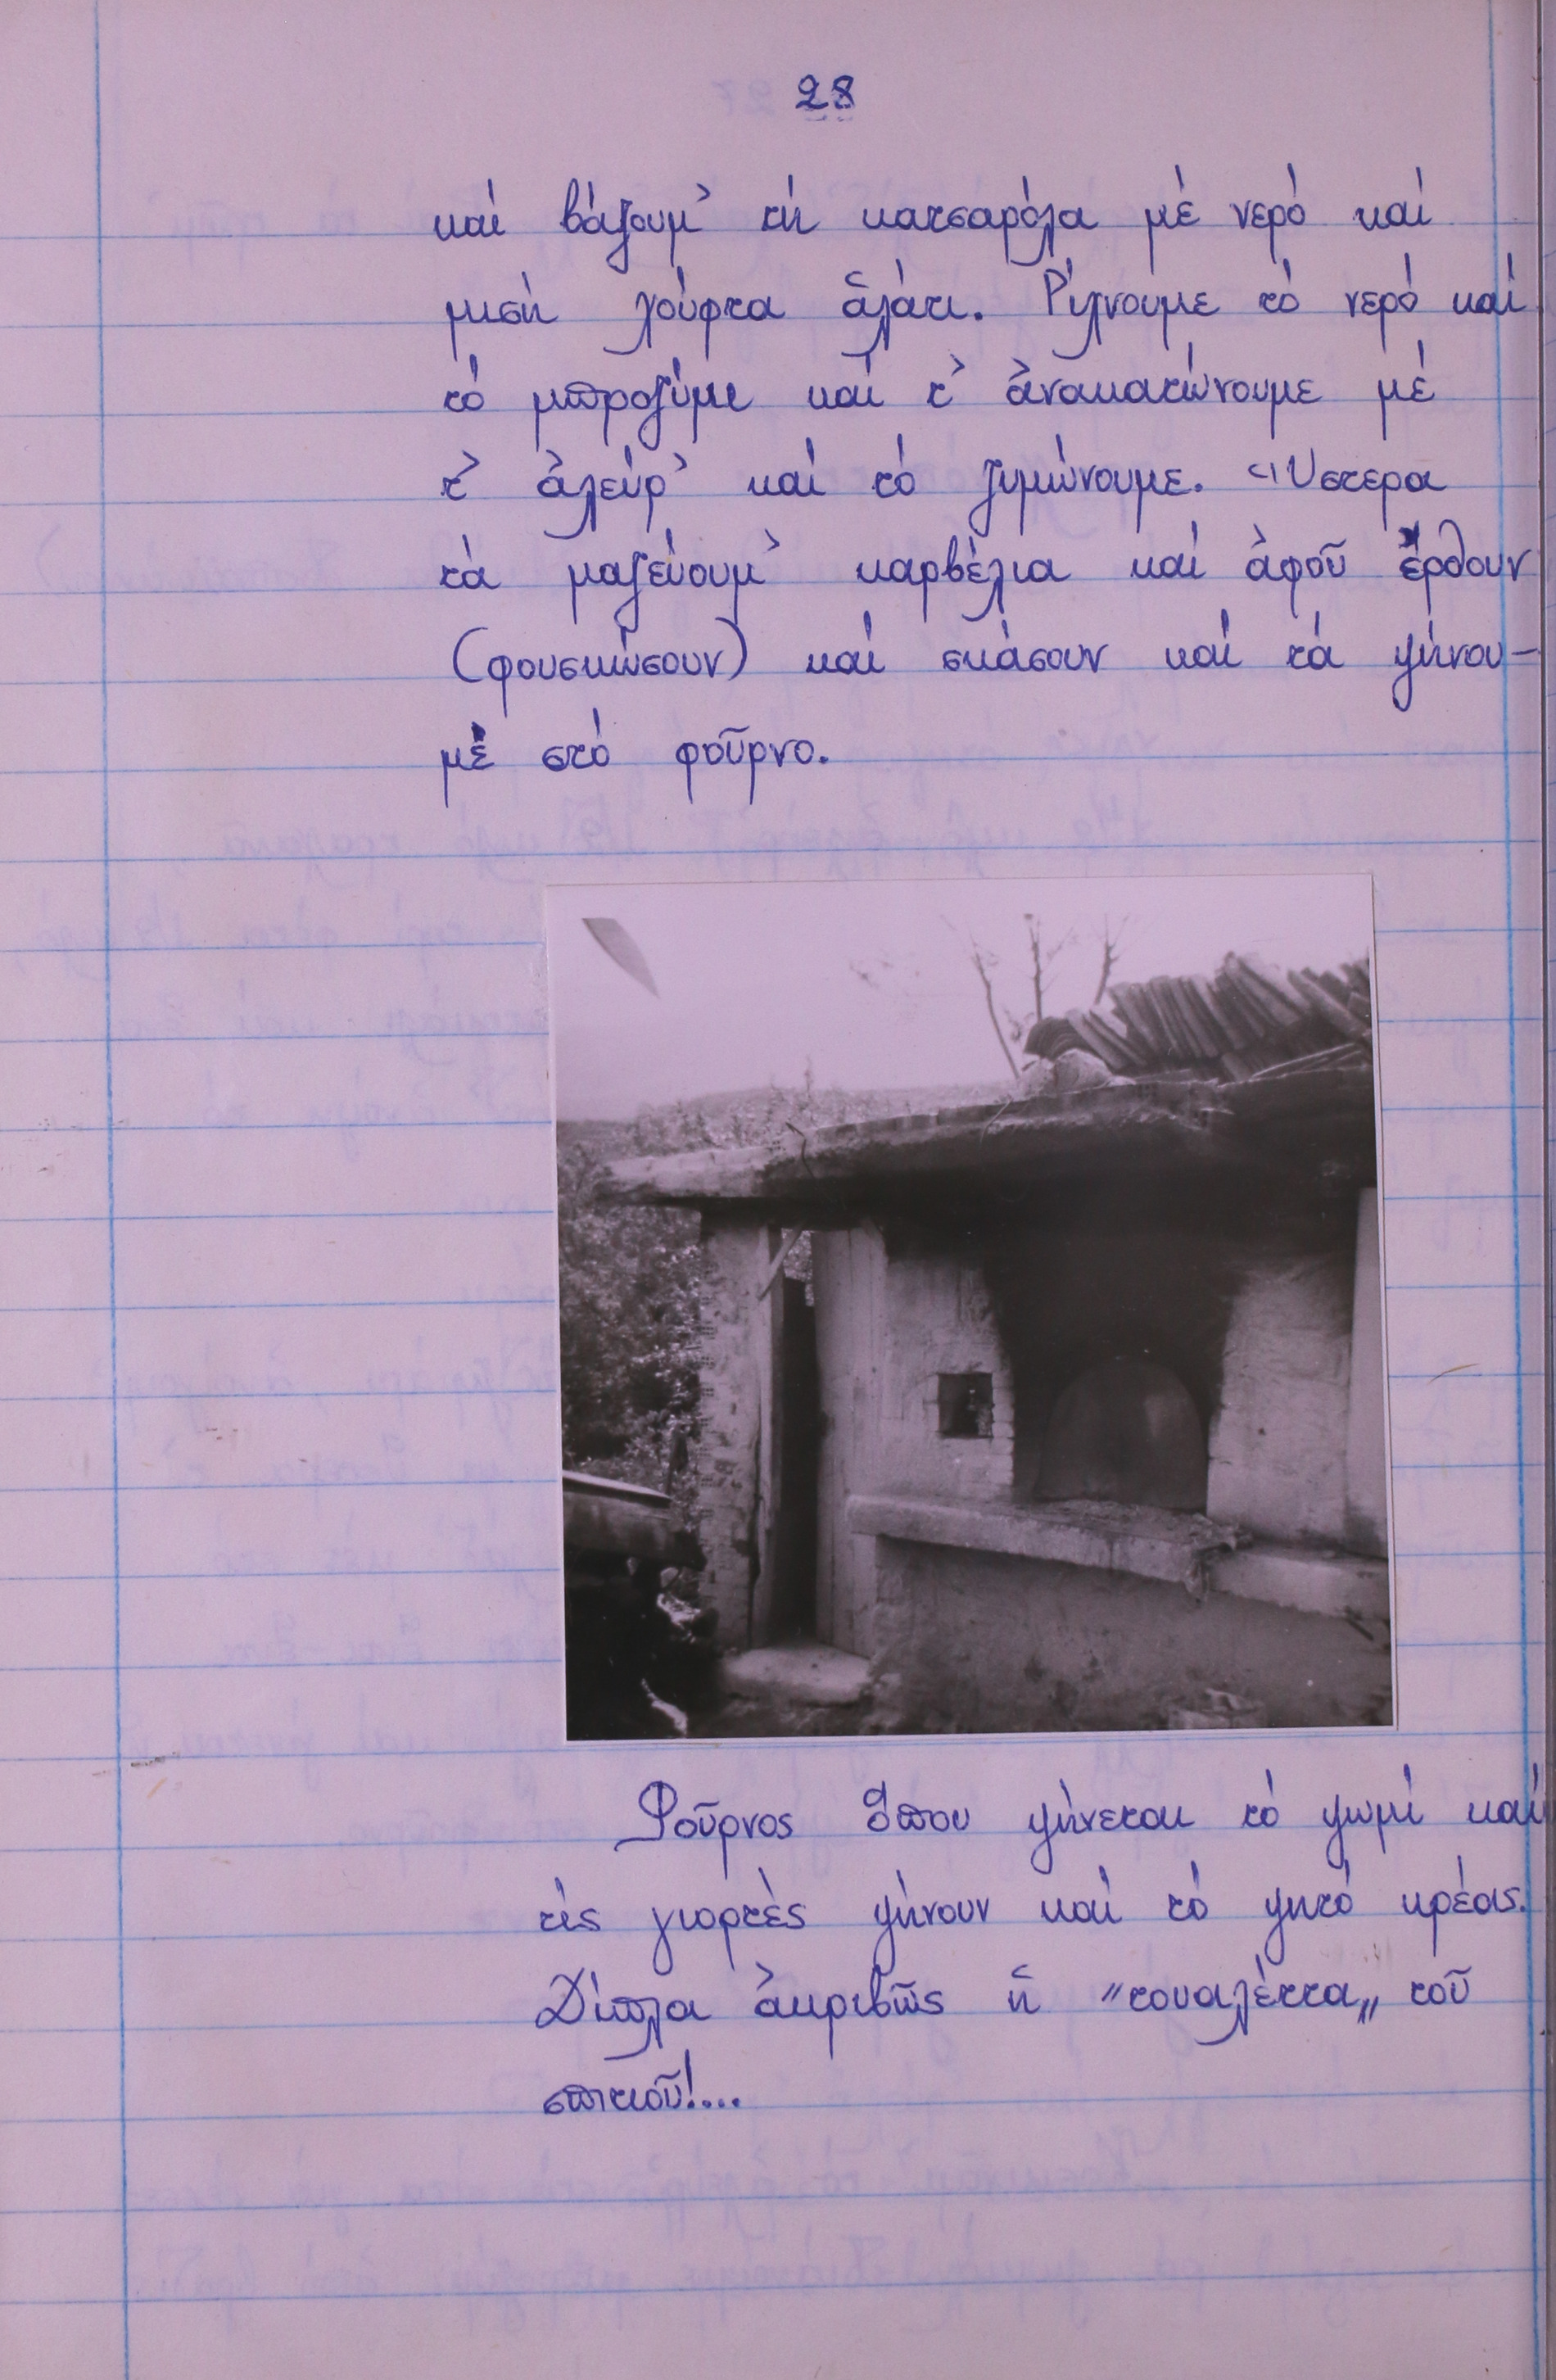 28
καί βάζουμ᾽ τή κατσαρόλα μέ νερό καί
μισή χούφτα ἁλάτι. Ρίχνουμε τό νερό καί
τό μπροζύμι καί τ᾽ ἀνακατώνουμε μέ
τ᾽ ἀλεύρ᾽ καί τό ζυμώνουμε. Ὕστερα
τά μαζεύουμ᾽ καρβέλια καί ἀφοῦ ἔρθουν
(φουσκώσουν) καί σκάσουν καί τά ψήνου-
με στό φοῦρνο.
Φοῦρνος ὅπου ψήνεται τό ψωμί καί
τίς γιορτές ψήνουν καί τό ψητό κρέας.
Δίπλα ἀκριβῶς ἡ "τουαλέττα„ τοῦ
σπιτιοῦ!....